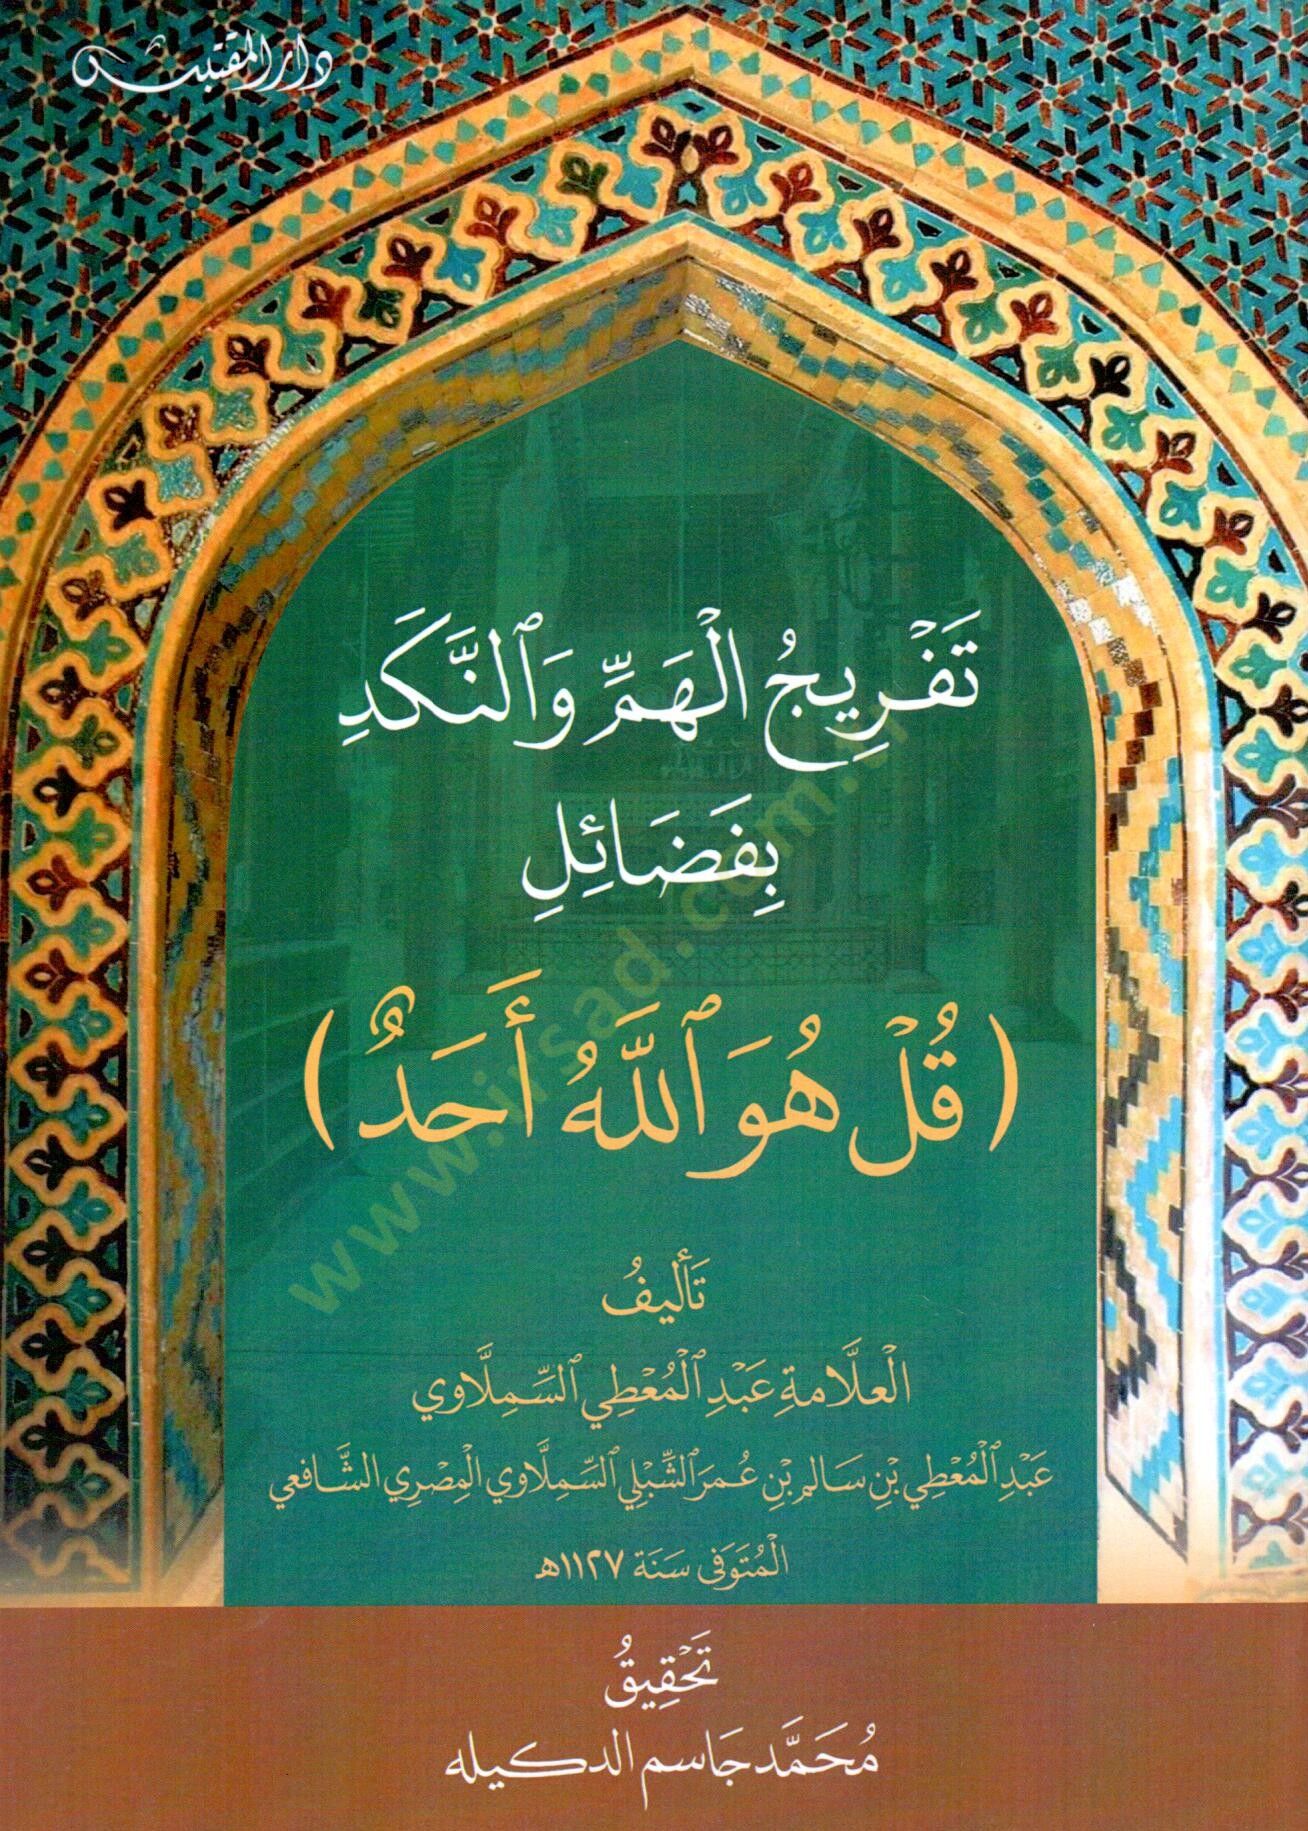 دار المقتبس
تَفْرِيجُ الْهَمِّ وَٱلنَّكَدِ
بِفَضَائِلِ
(قُلْ هُوَ ٱللَّهُ أَحَدٌ)
تَأْلِيفُ
الْعلَّامةِ عَبْدِ ٱلْمُعْطِي ٱلسِّمِلَّاوي
عَبْدِ ٱلْمُعْطِي بْنِ سَالم بْنِ عُمَرَ الشِّبْلِي ٱلسِّمِلَّاوي الْمِصْرِي الشَّافعي
الْمُتَوَفى سَنَة ١١٢٧هـ
تَحْقِيقُ
مُحَمَّد جَاسم الدكيله
www.irsad.com.tr